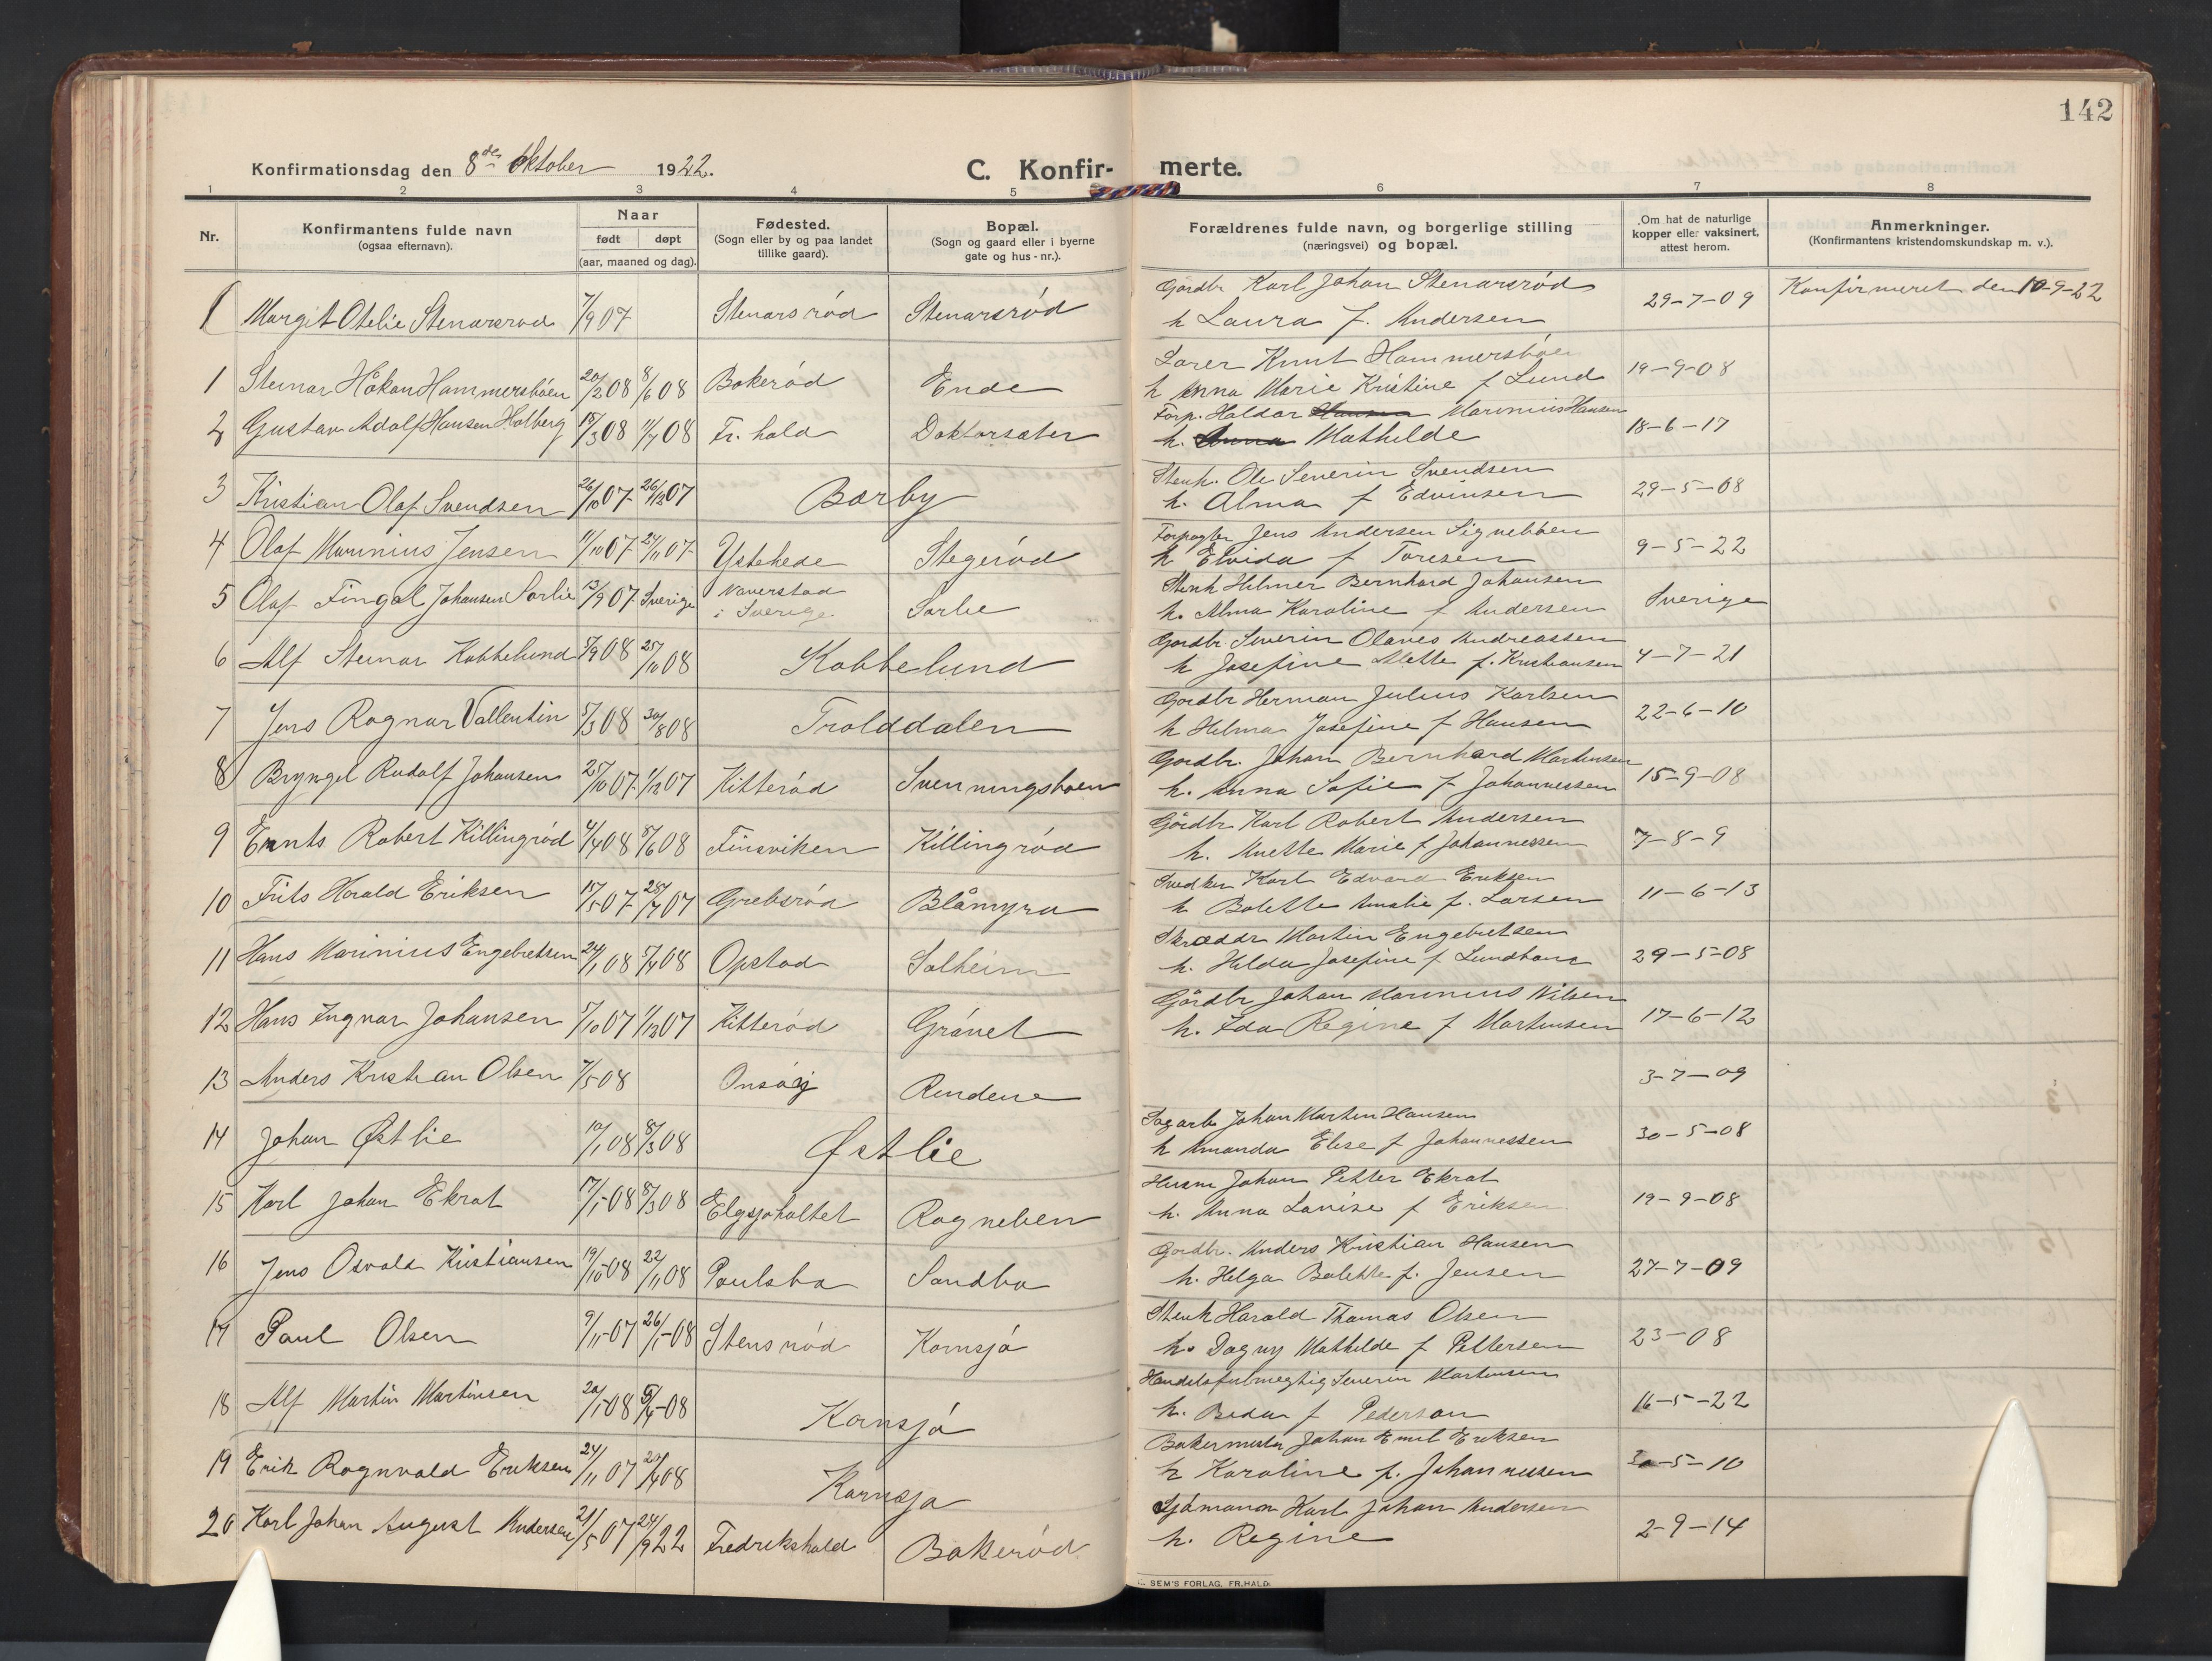 142
Konfirmationsdag den 8de Oktober 1922.
C. Konfir- merte.
1 2 3 4 5 6 7 8
Nr.
Konfirmantens fulde navn
(ogsaa efternavn).
Naar
født døpt
(aar, maaned og dag).
Fødested.
(Sogn eller by og paa landet
tillike gaard).
Bopæl.
(Sogn og gaard eller i byerne
gate og hus-nr.).
Forældrenes fulde navn, og borgerlige stilling
(næringsvei) og bopæl.
Om hat de naturlige
kopper eller vaksinert,
attest herom.
Anmerkninger.
(Konfirmantens kristendomskundskap m. v.).
1 Margit Otelie Stenarsrød 7/9 07 Stenarsrød Stenarsrød Gårdbr Karl Johan Stenarsrød 29-7-09 Konfirmeret den 10-9-22
h Laura f. Andersen
1 Steinar Håkon Hammersbøen 20/2 08 8/6 08 Bakerød Ende Lærer Knut Hammersbøen 19-9-08
h Anna Marie Kristine f Lund
2 Gustav Adolf Hansen Holberg 15/3 08 11/7 08 Fr. hald Doktorsæter Forp. Haldor Marinius Hansen 18-6-17
h. Mathilde
3 Kristian Olaf Svendsen 26/10 07 26/12 07 Bærby Stenh. Ole Severin Svendsen 29-5-08
h. Alma f Edvinsen
4 Olaf Marinius Jensen 11/10 07 24/11 07 Ystehede Stegerød Forpagter Jens Andersen Signebøen 9-5-22
h Elvida f Toresen
5 Olaf Fingal Johansen Sørlie 13/9 07 Sverige Naverstad Sørlie Stenh Hilmer Bernhard Johansen Sverige
i Sverige h. Alma Karoline f Andersen
6 Alf Steinar Kabbelund 5/9 08 25/10 08 Kabbelund Gårdbr. Severin Olaves Andreassen 4-7-21
h Josefine Alette f. Kristiansen
7 Jens Ragnar Vallentin 5/3 08 30/8 08 Trolddalen Gårdbr Herman Julius Karlsen 22-6-10
h Helma Josefine f Hansen
8 Bryngel Rudolf Johansen 25/10 07 1/12 07 Kitterød Svenningsbøen Gårdbr. Johan Bernhard Martinsen 15-9-08
h. Anna Sofie f Johannessen
9 Robert Killingrød 4/4 08 8/6 08 Finsviken Killingrød Gårdbr Karl Robert Andersen 7-8-9
h. Anette Marie f Johannessen
10 Frits Harald Eriksen 15/5 07 28/7 07 Grebsrød Blåmyra Karl Edvard Eriksen 11-6-13
h Bolette Amalie f. Larsen
11 Hans Marinius Engebretsen 24/1 08 5/4 08 Opstad Solheim Skrædder Martin Engebretsen 29-5-08
h. Hilda Josefine f
12 Hans Ingvar Johansen 5/10 07 1/12 07 Kitterød Grånet Gårdbr Johan Marinius Nilsen 17-6-12
h. Ida Regine f Martinsen
13 Anders Kristian Olsen 7/5 08 Onsøy Rendene 3-7-09
14 Johan Østlie 10/1 08 8/3 08 Østlie Sagarb Johan Martin Hansen 30-5-08
h Amanda Elise f Johannessen
15 Karl Johan Ekrat 17/1 08 8/3 08 Elgsjøholtet Ragneben Husm Johan Petter Ekrat 19-9-08
h. Anna Lovise f Eriksen
16 Jens Osvald Kristiansen 19/10 08 22/11 08 Paulsbo Sandbo Gårdbr. Anders Kristian Hansen 27-7-09
h. Helga Bolette f. Jensen
17 Paul Olsen 9/11 07 26/1 08 Stensrød Kornsjø Stenh Harald Thomas Olsen 23-08
h. Dagny Mathilde f Pettersen
18 Alf Martin Martinsen 20/1 08 5/4 08 Kornsjø Handelsfulmegtig Severin Martinsen 16-5-22
h. Beda f Pederson
19 Erik Ragnvald Eriksen 24/11 07 20/4 08 Kornsjø Bakermester Johan Emil Eriksen 30-5-10
h Karoline f. Johannessen
20 Karl Johan August Andersen 21/5 07 24/9 22 Fredrikshald Bakerød Sjømann Karl Johan Andersen 2-9-14
h. Regine
SEM'S FORLAG, FR.HALD.